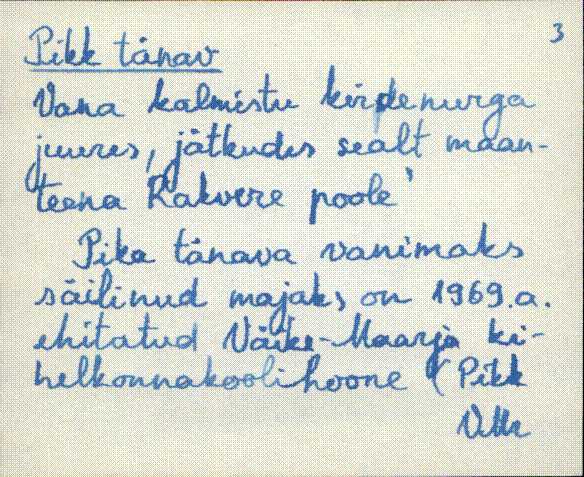 3
Pikk tänav
Vana kalmistu kirdenurga
juures, jätkudes sealt maan-
teena Rakvere poole'
Pika tänava vanimaks
säilinud majaks on 1969.a.
ehitatud Väike-Maarja ki-
helkonnakooli hoone (Pikk